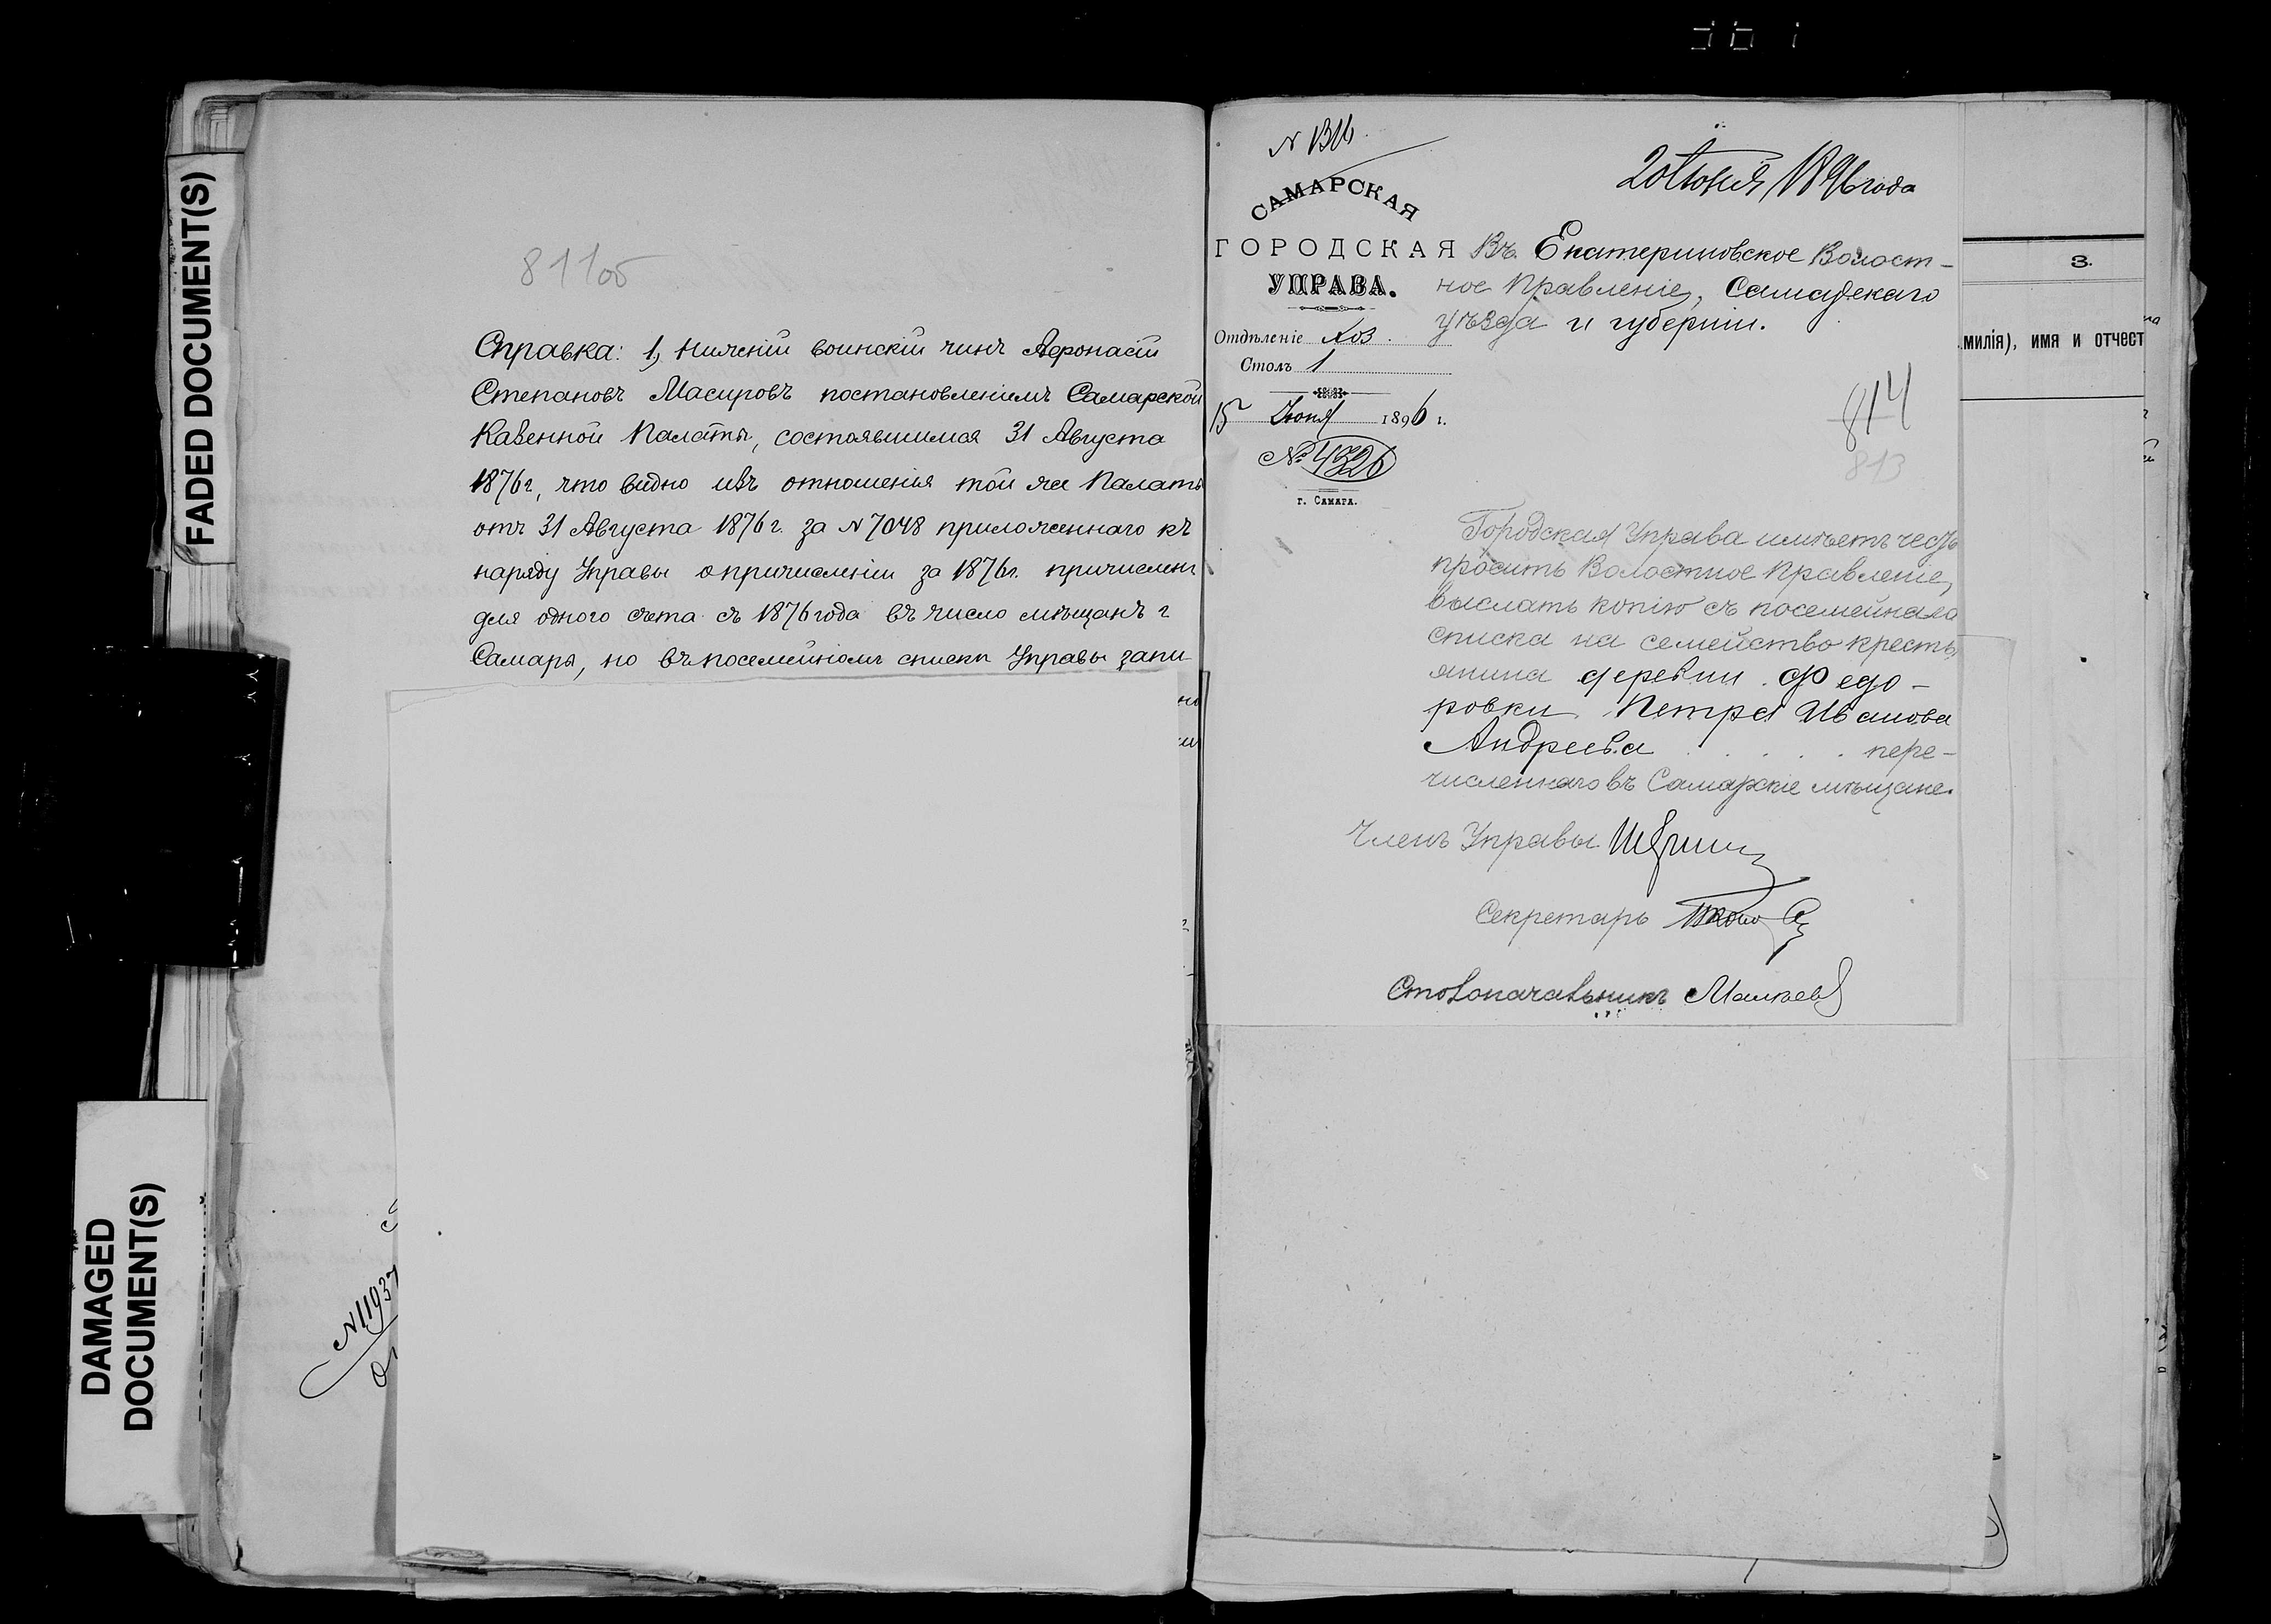 FADED DOCUMENT(S)
DAMAGED
DOCUMENT(S)
811об
Справка: 1, Нижній воинскій чинъ Афонасій
Степановъ Масировъ постановленіемъ Самарской
Казенной Палаты, состоявшимся 31 Августа
1876 г, что видно изъ отношенія той же Палаты
отъ 31 Августа 1876 г. за N 7048 приложеннаго къ
наряду Управы о причисленіи за 1876 г. причисленъ
для одного счета съ 1876 года въ число мѣщанъ г
Самары, но въ посемейномъ списки Управы запи
N 11937
САМАРСКАЯ
ГОРОДСКАЯ
УПРАВА.
Отдѣленіе Хоз.
Столъ 1
15 Іюня 1896 г.
№ 4326
г. САМАРА.
20 Іюня 1896 года
Въ Екатериновское Волост-
ное Правленіе, Самарскаго
уѣзда и губерніи.
814
813
Городская Управа имѣетъ честь
просить Волостное Правленіе,
выслать копію съ посемейнаго
списка на семейство кресть
янина деревни Федо-
ровки Петра Иванова
Андреева . . . . . пере-
численнаго въ Самарскіе мѣщане.
Членъ Управы
Секретарь
Столоначальникъ
3.
милія), имя и отчест